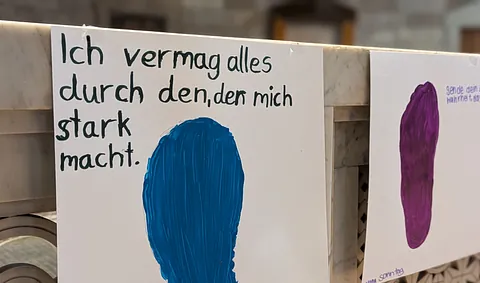 Ich vermag alles
durch den, der mich
stark
macht.
Sende dein
Sonntag